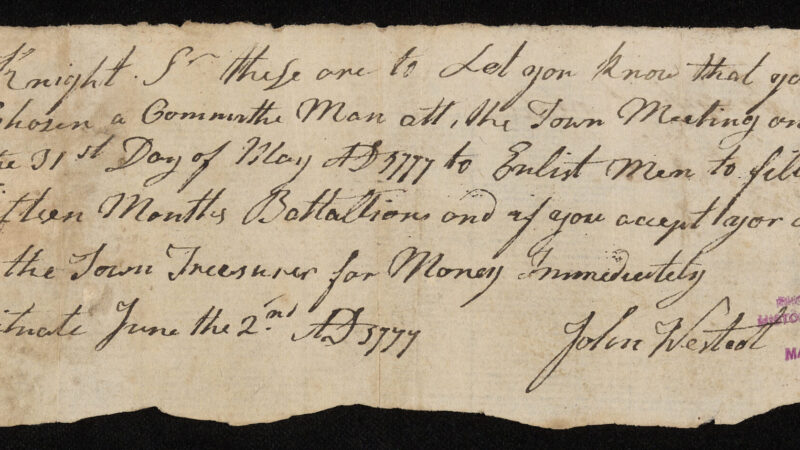 Knight. Sr these are to Led you know that yo
Chosen a Committe Man att, the Town Meeting on
he 31st Day of May AD 1777 to Enlist Men to fill
ifteen Months Battallions and if you accept
the Town Treasurer for Money Immediately
ituate June the 2nd AD 1777 John Westcot
HISTO
MA